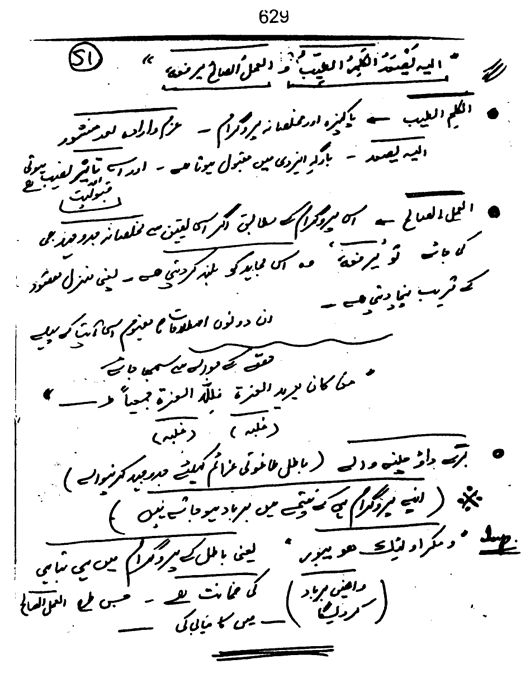 629
51
" الیہ یصعد الکلم الطیب و العمل الصالح یرفعہ "
• الکلم الطیب ـ پاکیزہ اور مخلصانہ پروگرام ـ عزم و ارادہ اور منشور
الیہ یصعد ـ بارگہ ایزدی میں مقبول ہوتا ہے ـ اور اسے تاثیر نصیب ہوتی ہے
اور قبولیت
• العمل الصالح ـ اس پروگرام کے مطابق اگر اسی یقین سے مخلصانہ جدوجہد بھی
کی جائے تو " یرفعہ " وہ اس مجاہد کو بلند کر دیتی ہے ـ یعنی منزل مقصود
کے قریب پہنچا دیتی ہے ـ
ان دونوں اصطلاحات کا مفہوم اسی آیت کے پہلے
حصے کے حوالے سے سمجھا جائے
" من کان یرید العزة فللہ العزة جمیعاً ط ـــ "
(غلبہ) (غلبہ)
• برے داؤ چلنے والے (باطل طاغوتی عزائم کیلئے جدوجہد کرنیوالے)
(اپنے پروگرام ہی کے نتیجے میں برباد ہو جاتے ہیں)
Imp. " و مکر اولئک ھو یبور " یعنی باطل کے پروگرام میں ہی تباہی
کی ضمانت ہے ـ جس طرح العمل الصالح
میں کامیابی کی